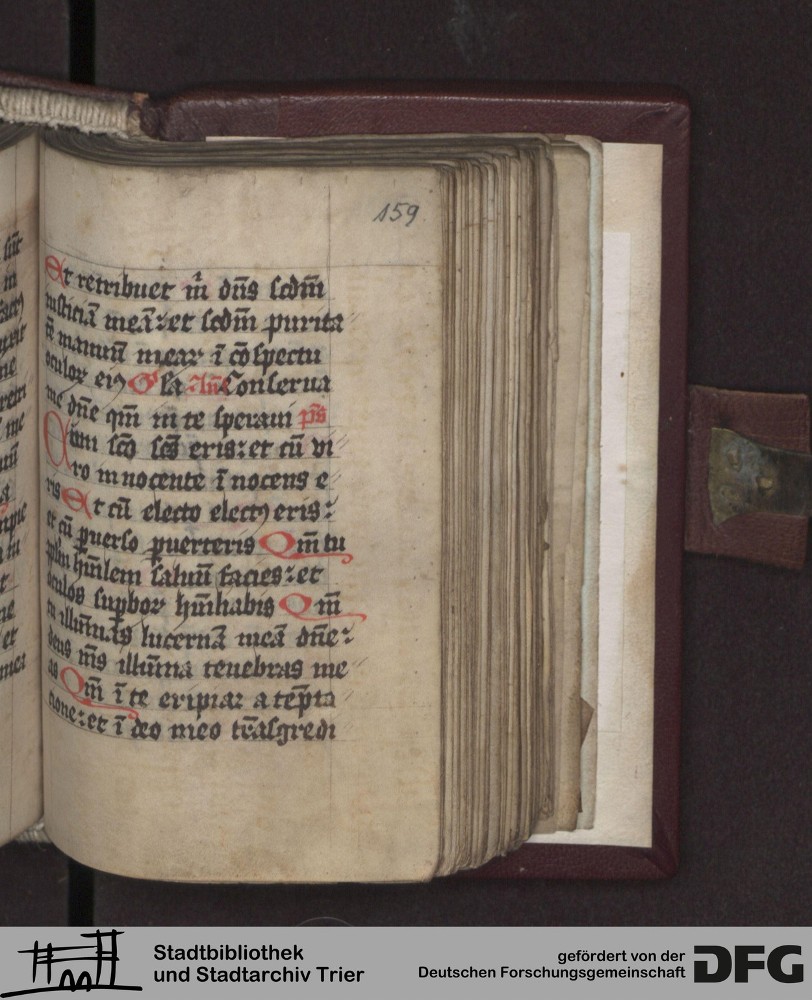 159
Et retribuet m̄ dn̄s scdm̄
iusticiā meā: et scdm̄ purita
tē manuū mear̄ ī cōspectu
oculor̄ eiꝰ Gl̓a An̄ Conserua
me dn̄e qm̄ in te speraui ps̄
Cum scō scs̄ eris: et cū vi
ro innocente īnocens e
ris Et cū electo electꝰ eris:
et cū puerso puerteris Qm̄ tu
pplm̄ hūilem saluū facies: et
oculos supbor̄ hūiliabis Qm̄
tu illūinas lucernā meā dn̄e:
deus m̄s illūina tenebras me
as Qm̄ ī te eripiar a tēpta
tione: et ī deo meo trāsgredi
Stadtbibliothek
und Stadtarchiv Trier
gefördert von der
Deutschen Forschungsgemeinschaft
DFG